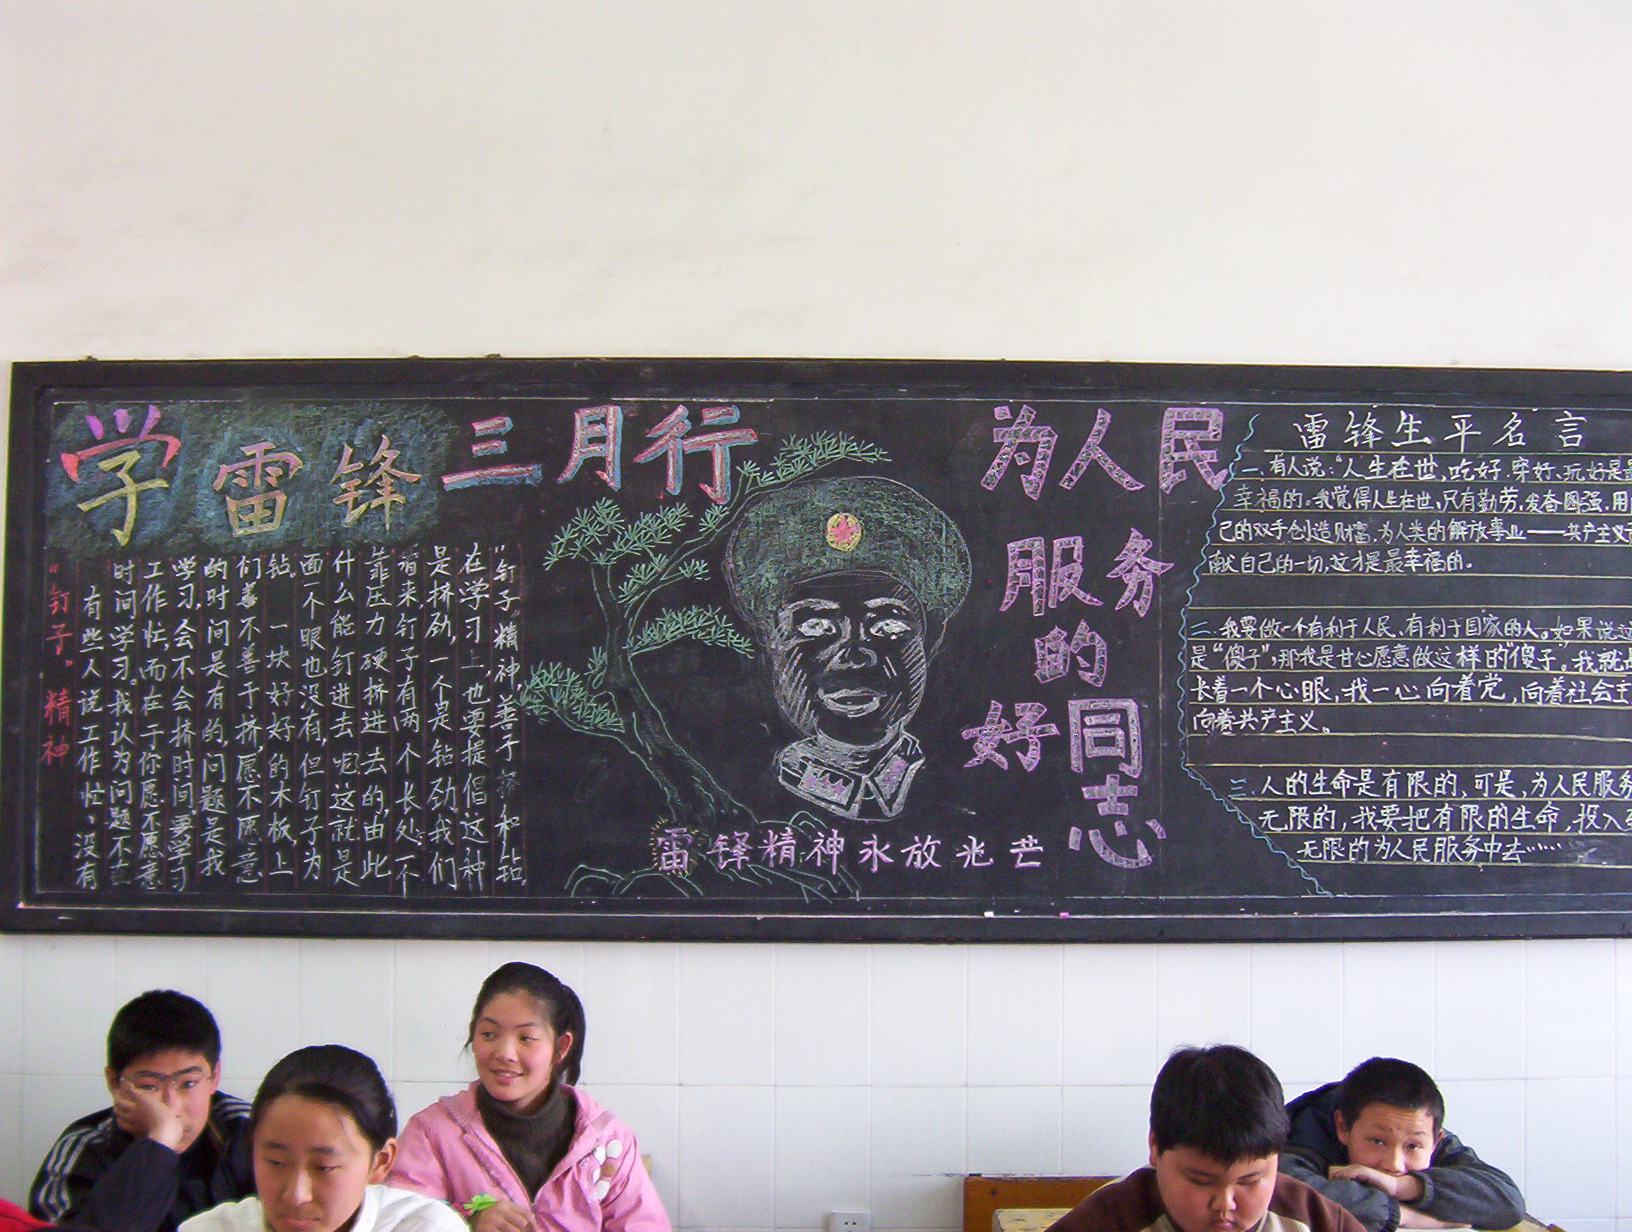 学雷锋三月行
“钉子”精神
有些人说工作忙、没有
时间学习。我认为问题不在
工作忙,而在于你愿不愿意
学习,会不会挤时间。要学习
的时间是有的,问题是我
们善不善于挤,愿不愿意
钻。一块好好的木板,上
面一个眼也没有,但钉子为
什么能钉进去呢?这就是
靠压力硬挤进去的,由此
看来,钉子有两个长处:一个
是挤劲,一个是钻劲,我们
在学习上,也要提倡这种
“钉子”精神,善于挤和钻。
雷锋精神永放光芒
为人民
服务
的
好同志
雷锋生平名言
一.有人说:“人生在世,吃好.穿好.玩好是最
幸福的。我觉得人生在世,只有勤劳,发奋图强.用
己的双手创造财富,为人类的解放事业——共产主义
献自己的一切,这才是最幸福的。
二.我要做一个有利于人民,有利于国家的人。如果说这
是“傻子”,那我是甘心愿意做这样的傻子。我就
长着一个心眼,我一心向着党,向着社会主
向着共产主义。
三.人的生命是有限的,可是,为人民服务
无限的,我要把有限的生命,投入到
无限的为人民服务中去……